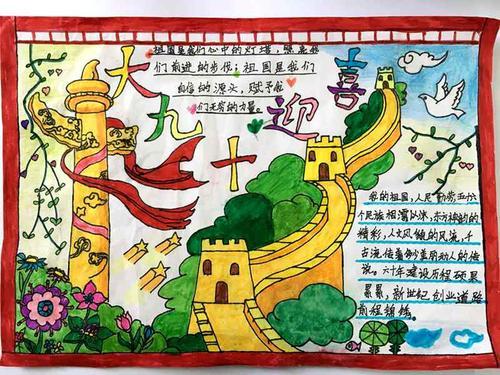 祖国是我们心中的灯塔，照亮我
们前进的步伐；祖国是我们
自信的源头，赋予我
们无穷的力量。
喜
迎
十
九
大
我的祖国，人民勤劳五十六
个民族相濡以沫，东方神韵的
精彩，人文风情的风流，千
古流传着多少美丽动人的传
说。六十年建设历程硕果
累累，新世纪创业道路
前程锦绣。